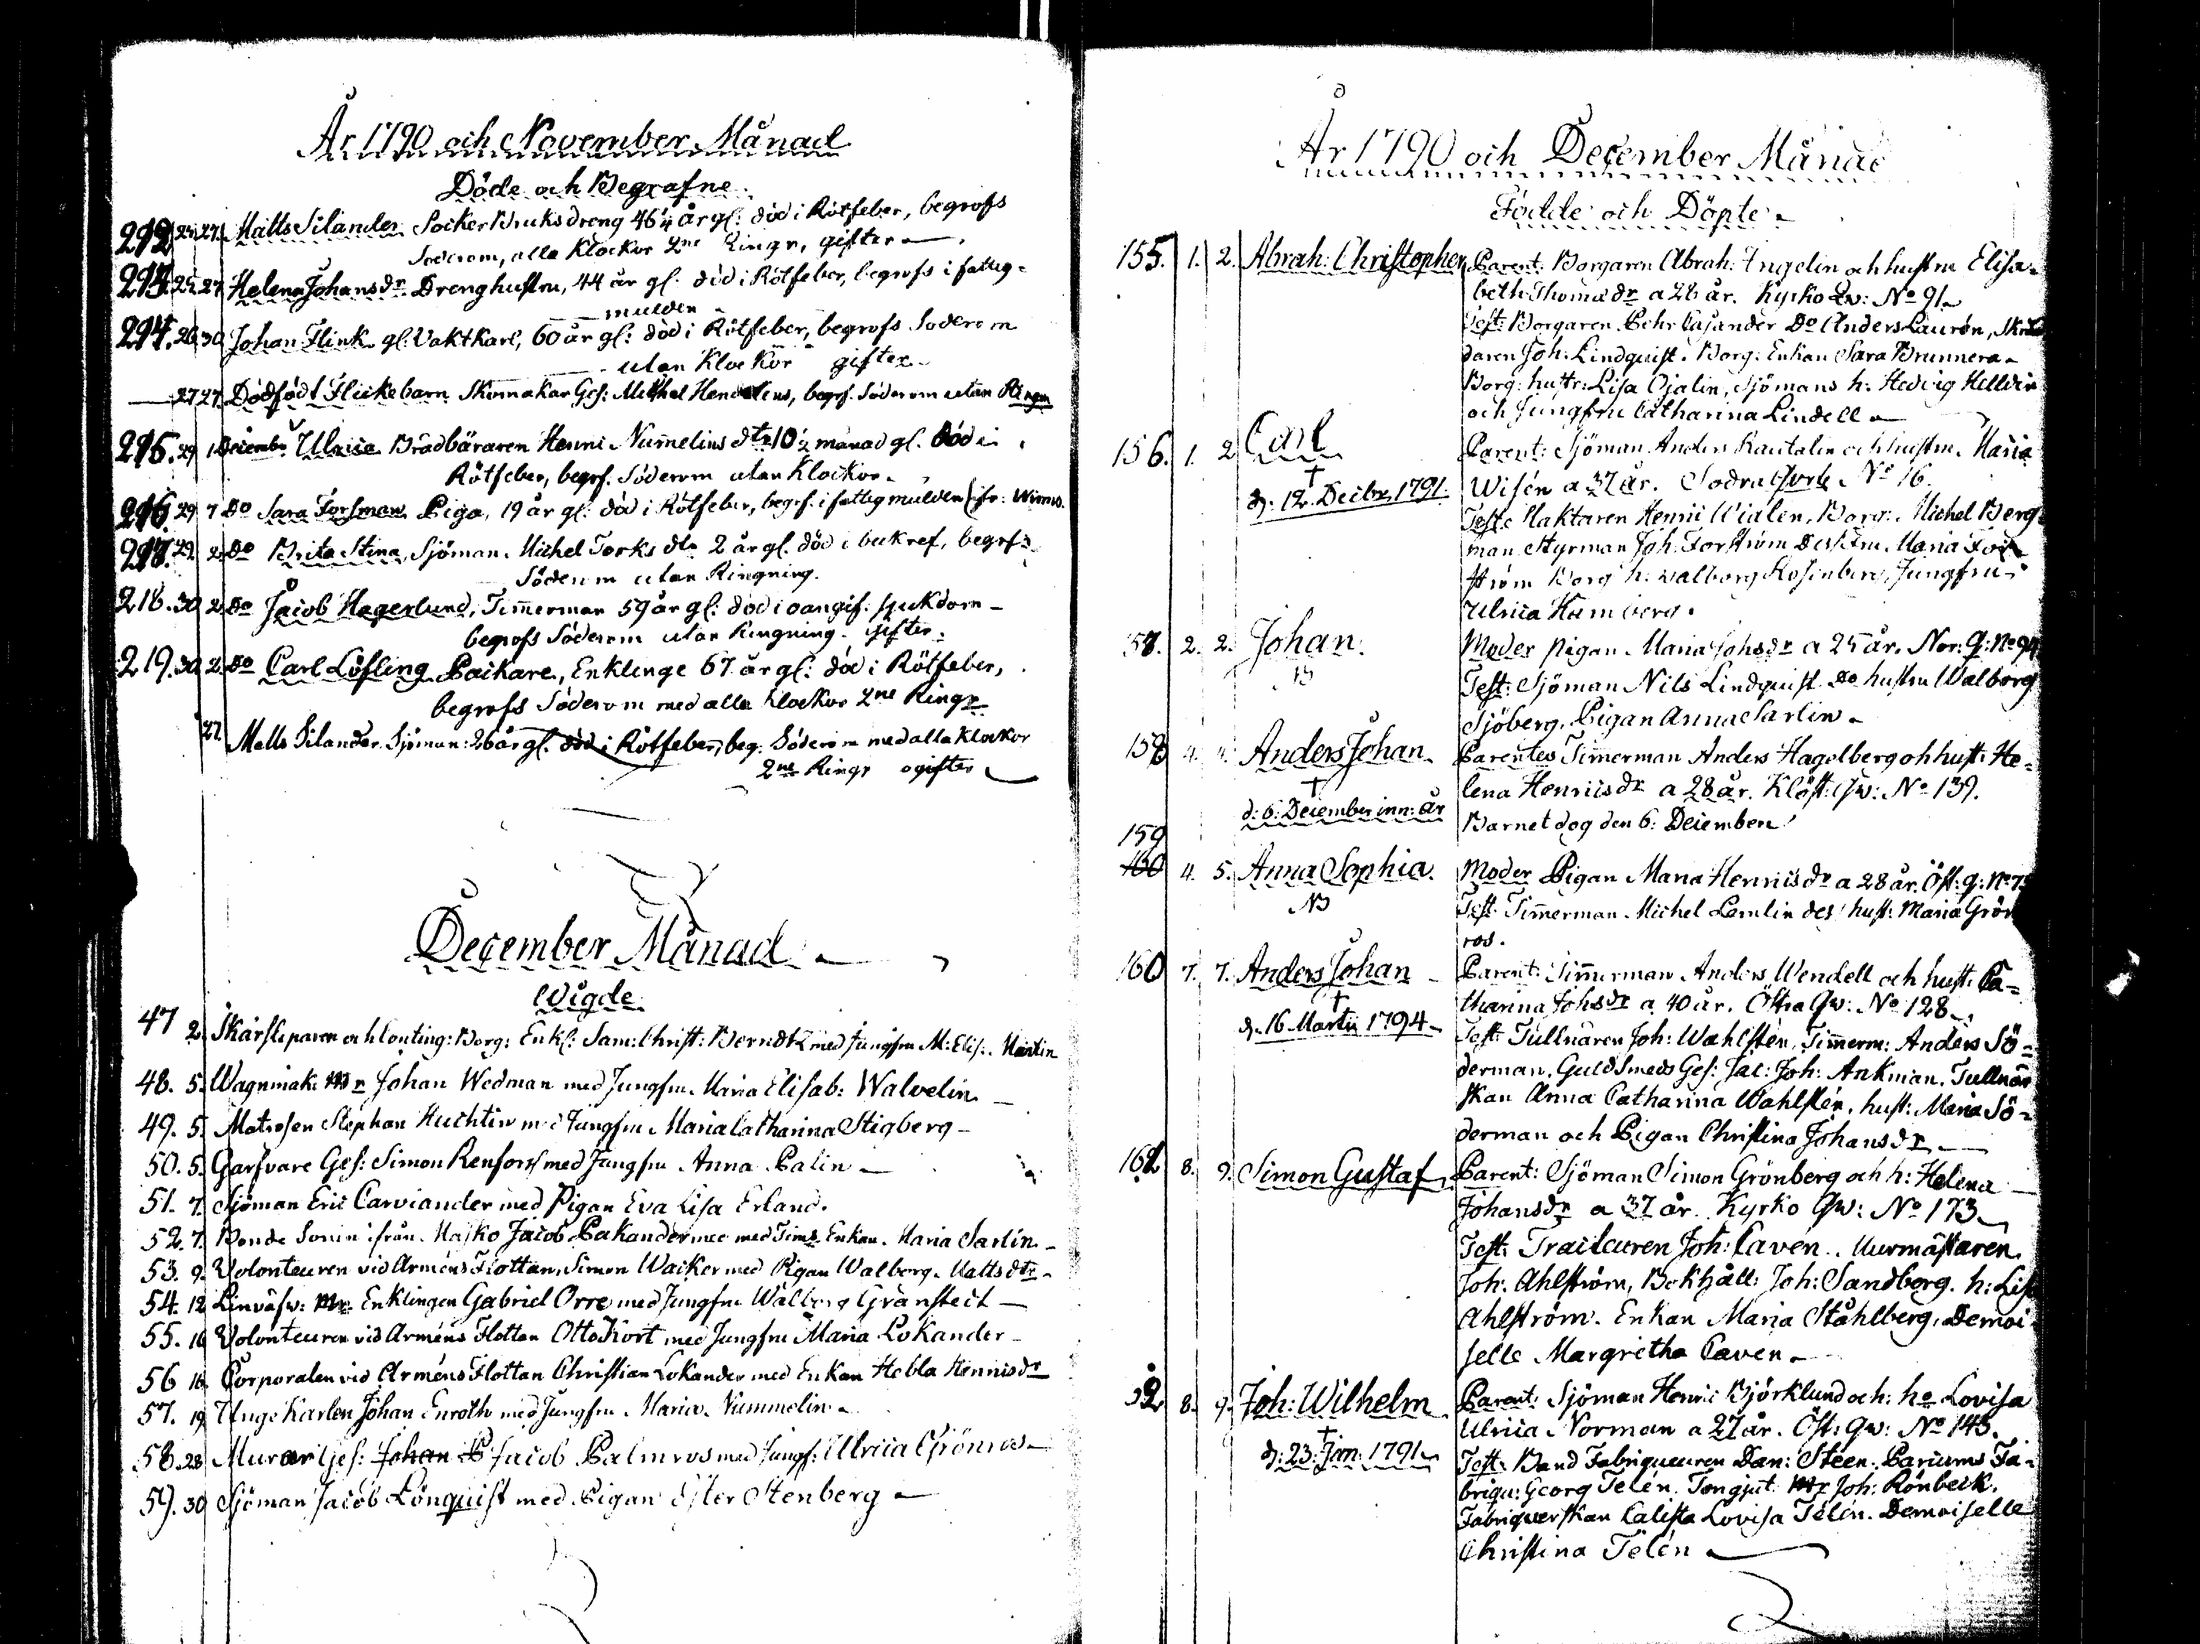 År 1790 och November Månad
Döde och Begrafne.
212 25 27 Matts Silander Socker Bruks dreng 46¼ år gl: död i Rötfeber, begrofs
Söderom, alla Klockor 2ne Ringr, gifter
25 27 Helena Johansdr Dreng hustru, 44 år gl: död i Rötfeber, begrofs i fattig-
mulden
214. 26 30 Johan Flink gl. Vaktkarl, 60 år gl: död i Rötfeber, begrofs Söderom
utan Klockor gifter
27 27 Dödfödt Flickebarn Skomakar Ges: Michel Hen, begrf. Söderom utan Ringn
29 1 December Ulrica Brädbäraren Henric Nummelins dtr 10½ månad gl. död i
Rötfeber, begrf. Söderom utan Klockor.
216. 29 7 Do Sara Forsman Piga, 19 år gl: död i Rötfeber, begrf. i fattig mulden (fr: Wirmo.
217. 29. 2 Do Brita Stina, Sjöman Michel Torks dtr 2 år gl. död i bukref, begrfs
Söderom utan Ringning.
218. 30 2 Do Jacob Hagerlund, Timmerman 59 år gl: död i oangif. sjukdom
begrofs Söderom utan Ringning. gifter.
219. 30 2 Do Carl Löfling Packare, Enklinge 67 år gl: död i Rötfeber,
begrofs Söderom med alla Klockor 2ne Ringr
27. Matts Silander Sjöman: 26 år gl. död i Rötfeber, beg. Söderom med alla Klockor
2ne Ringr ogifter
December Månad
Wigde
47 2. Skärsliparen och Conting: Borg: Enkl: Sam: Christ: Berndtz med Jungfru M: Elis: Martin
48. 5. Wagnmak: Mr Johan Wedman med Jungfru Maria Elisab: Walvelin
49. 5. Matrosen Stephan Huchtin med Jungfru Maria Catharina Stigberg
50. 5. Garfvare Ges: Simon Renfors med Jungfru Anna Palin
51. 7. Sjöman Eric Carviander med Pigan Eva Lisa Erland.
52. 7. Bonde Sonen ifrån Masko Jacob med Tims Enkan Maria Sarlin
53. 9. Volonteuren vid Armens Flottan, Simon Wacker med Pigan Walborg Mattsdtr
54. 12 Linväfw: Mr. Enklingen Gabriel Orre med Jungfru Walborg Granstedt
55. 16 Volonteuren vid Armens Flottan Otto Kort med Jungfru Maria Lokander
56 16 Corporalen vid Armens Flottan Christian Lokander med Enkan Hebla Henricsdr
57. 19 Unge Karlen Johan Enroth med Jungfru Maria Nummelin
58. 28 Murar Ges: Johan P Jacob Palmros med Jungf: Ulrica Grönros
59. 30 Sjöman Jacob Lönquist med Pigan Ester Stenberg
År 1790 och December Månad
Födde och Döpte
155. 1. 2. Abrah: Christopher Parent: Borgaren Abrah: Engelin och hustru Elisa-
beth Thomædr a 26 år. Kyrko Qv: No 91
Test: Borgaren Pehr Casander Do Anders Laurén, Skräd
daren Joh: Lindquist. Borg: Enkan Sara Brunnera
Borg: hustr: Lisa Ojalin, Sjömans h: Hedvig Hellvin
och Jungfru Catharina Lindell
156. 1. 2 Carl Parent: Sjöman Anders Rautalin och hustru Maria
† d: 12. Decbr 1791. Wisén a 37 år. Södra Qvrt No 16.
Test: Maktaren Henric Wialen, Borg: Michel Berg
man Styrman Joh: Forström Dess Fru Maria For
ström Borg h: Walborg Rosenberg, Jungfru
Ulrica Hamberg.
157. 2. 2. Johan. Moder pigan Maria Johsdr a 25 år. Nor: q: No 94
NB Test: Sjöman Nils Lindquist Do hustru Walborg
Sjöberg. Pigan Anna Sarlin
158 4. 4. Anders Johan Parentes Timmerman Anders Hagelberg och hust: He-
† lena Henricsdr a 28 år. Klöst: Qw: No 139.
d: 6: December inn: år Barnet dog den 6: December
159
160 4. 5. Anna Sophia. Moder Pigan Maria Henricsdr a 28 år. Öst: q: No 7
NB Test: Timmerman Michel Lemlin des hust: Maria Grön
ros.
160 7. 7. Anders Johan Parent: Timmerman Anders Wendell och hust: Ca-
† tharina Johsdr a 40 år. Östra Qw: No 128
d. 16 Martii 1794 Test: Tullnären Joh: Wahlstén, Timmerm: Anders Sö-
derman. Guldsmeds Ges: Jac: Joh: Ankman. Tullnär
skan Anna Catharina Wahlstén, hust: Maria Sö-
derman och Pigan Christina Johansdr
161 8. 9. Simon Gustaf Parent: Sjöman Simon Grönberg och h: Helena
Johansdr a 37 år. Kyrko Qw: No 173
Test: Traiteuren Joh: Cavén. Murmästaren
Joh: Ahlström, Bokhåll: Joh: Sandberg. h: Lisa
Ahlström. Enkan Maria Ståhlberg, Demoi
selle Margretha Caven
8. 9. Joh: Wilhelm Parent: Sjöman Henric Björklund och ho Lovisa
† Ulrica Norman a 27 år. Öst: Qw: No 143.
d: 23: Jan: 1791 Test: Band Fabriqueuren Dan: Steen. Parcums Fa-
briqu: Georg Telén. Tengjut. Mr Joh: Rönbeck.
Fabriqverskan Calista Lovisa Telén. Demoiselle
Christina Telén